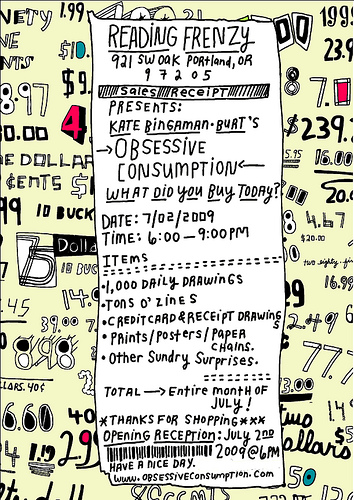 READING FRENZY
921 SW OAK Portland, OR
97205
Sales Receipt
PRESENTS:
KATE BINGAMAN-BURT'S
→OBSESSIVE
CONSUMPTION←
WHAT DID YOU BUY TODAY?
DATE: 7/02/2009
TIME: 6:00-9:00PM
ITEMS
•1,000 DAILY DRAWINGS
•TONS O' ZINES
•CREDIT CARD & RECEIPT DRAWINGS
• Prints/Posters/PAPER
chains.
•Other Sundry Surprises.
TOTAL → Entire month of
JULY!
*THANKS FOR SHOPPING***
OPENING RECEPTION: JULY 2ND
2009 @ 6PM
HAVE A NICE DAY.
www.OBSESSIVECONSUMPTION.com
NETY 1.99
$10.
$9.
8.97
0.00 4
E DOLLAR
CENTS
99 10 BUCK
Dolla
75
10 BUC
.45
39.00
898
LLARS. 40¢
6.60 40
4 1.19 29
00 1999
8
$239.
5.95 16.00
20.
88 4.67
$20.00
two eighty-fi
16.99
99
77.7
3.00
two
dollars
.50